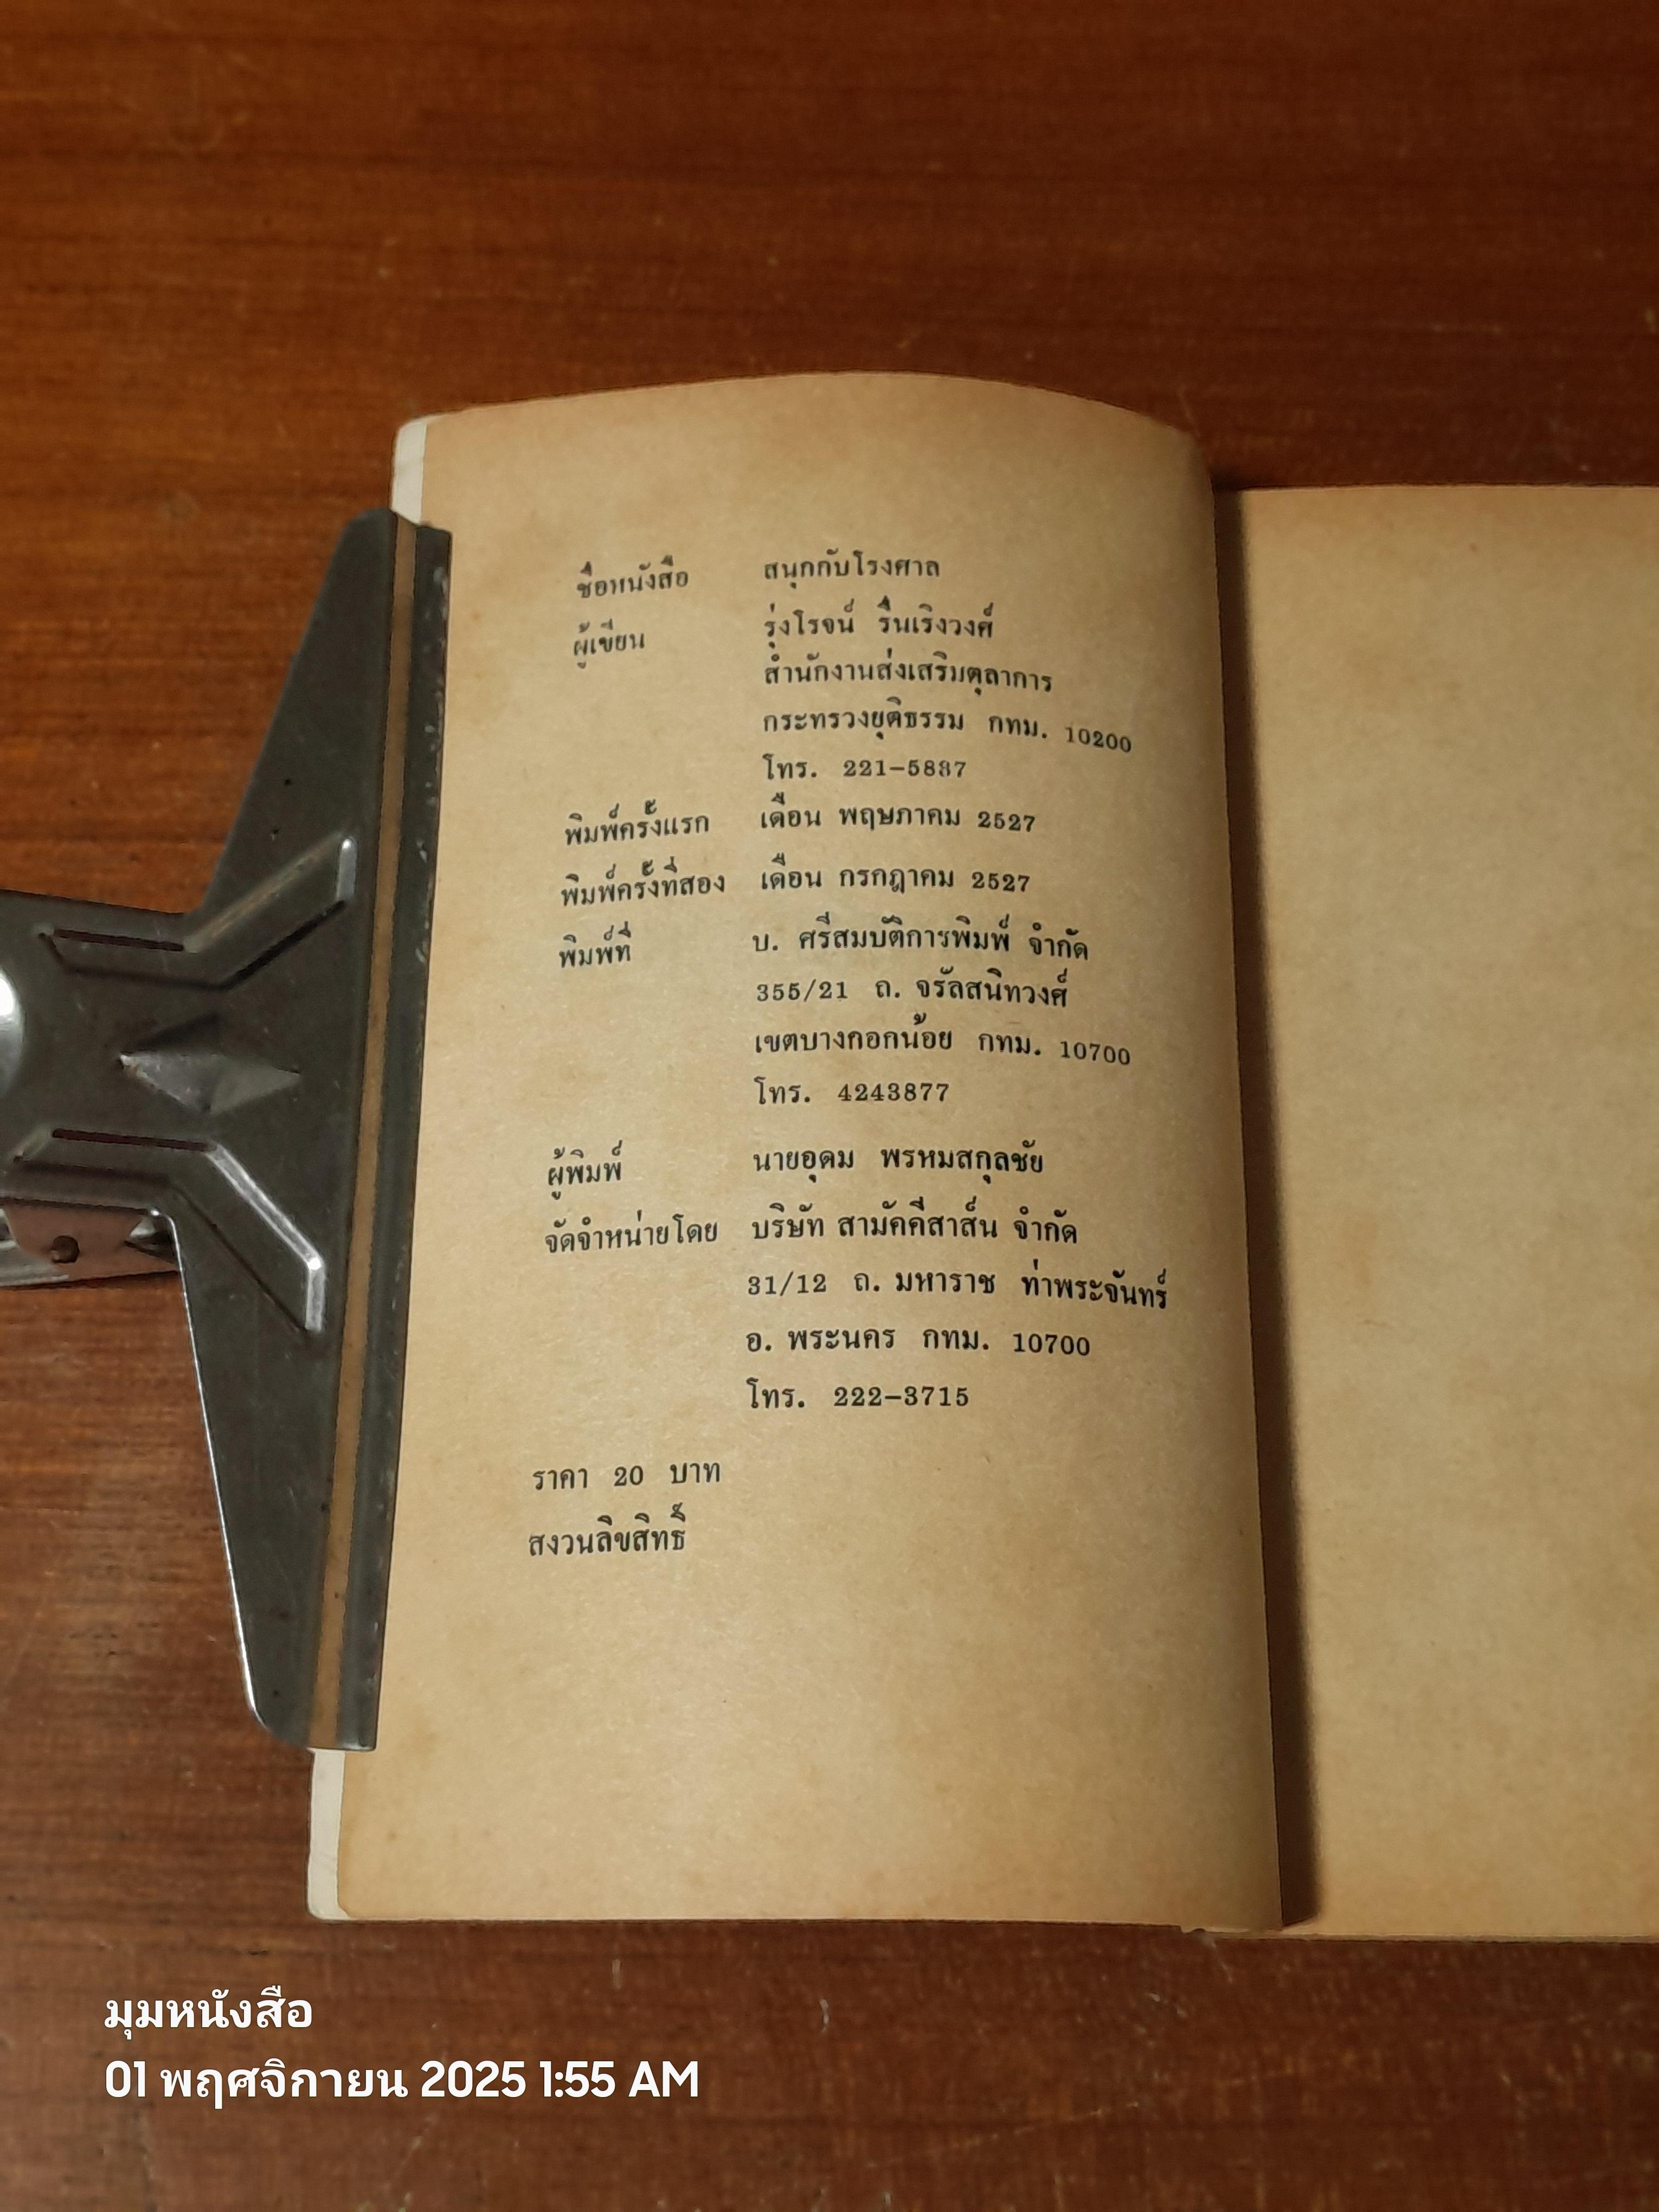 ชื่อหนังสือ สนุกกับโรงศาล
ผู้เขียน รุ่งโรจน์ รื่นเริงวงศ์
สำนักงานส่งเสริมตุลาการ
กระทรวงยุติธรรม กทม. 10200
โทร. 221-5837
พิมพ์ครั้งแรก เดือน พฤษภาคม 2527
พิมพ์ครั้งที่สอง เดือน กรกฎาคม 2527
พิมพ์ที่ บ. ศรีสมบัติการพิมพ์ จำกัด
355/21 ถ. จรัลสนิทวงศ์
เขตบางกอกน้อย กทม. 10700
โทร. 4243877
ผู้พิมพ์ นายอุดม พรหมสกุลชัย
จัดจำหน่ายโดย บริษัท สามัคคีสาส์น จำกัด
31/12 ถ. มหาราช ท่าพระจันทร์
อ. พระนคร กทม. 10700
โทร. 222-3715
ราคา 20 บาท
สงวนลิขสิทธิ์
มุมหนังสือ
01 พฤศจิกายน 2025 1:55 AM